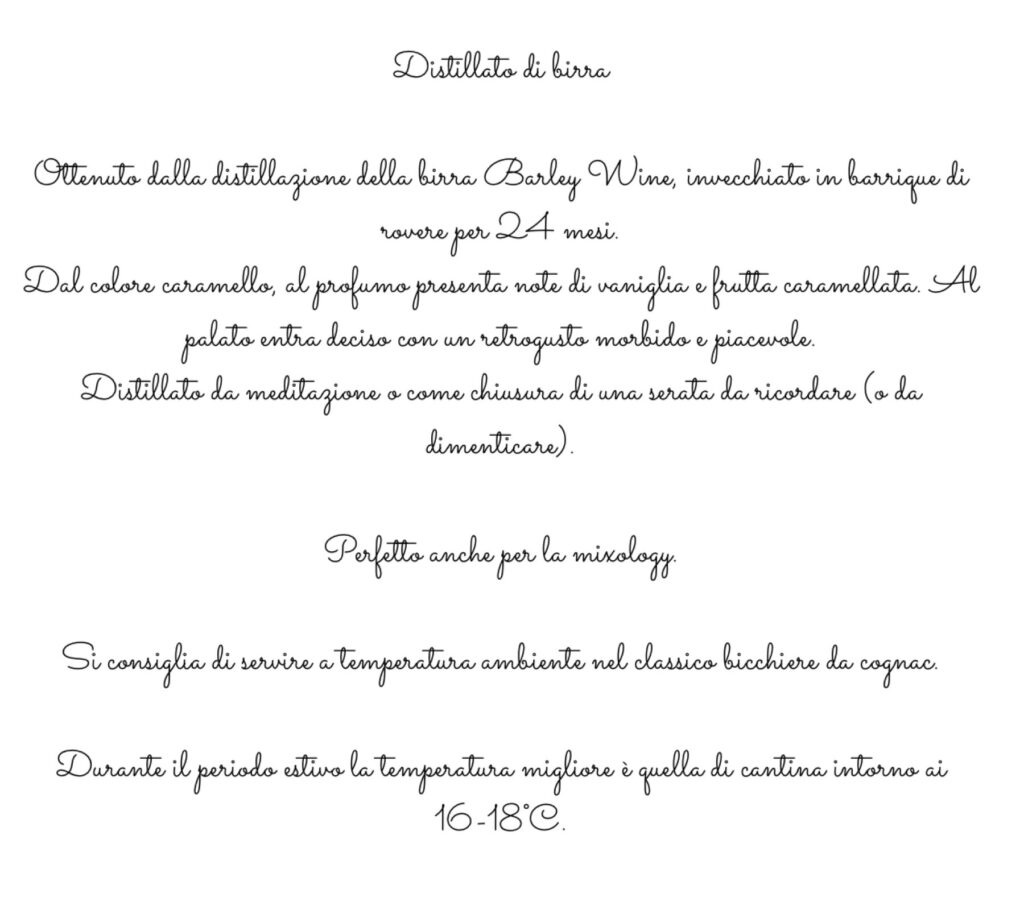 Distillato di birra
Ottenuto dalla distillazione della birra Barley Wine, invecchiato in barrique di
rovere per 24 mesi.
Dal colore caramello, al profumo presenta note di vaniglia e frutta caramellata. Al
palato entra deciso con un retrogusto morbido e piacevole.
Distillato da meditazione o come chiusura di una serata da ricordare (o da
dimenticare).
Perfetto anche per la mixology.
Si consiglia di servire a temperatura ambiente nel classico bicchiere da cognac.
Durante il periodo estivo la temperatura migliore è quella di cantina intorno ai
16-18°C.